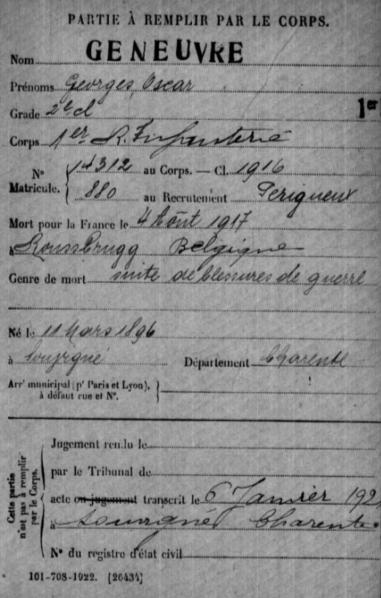 PARTIE À REMPLIR PAR LE CORPS.
Nom GENEUVRE
Prénoms Georges Oscar
Grade 2e cl
1er
Corps 1er R. Infanterie
N° 14312 au Corps. — Cl. 1916
Matricule. 880 au Recrutement Périgueux
Mort pour la France le 4 Août 1917
à Roussbrugg Belgique
Genre de mort suite de blessures de guerre
Né le 11 Mars 1896
à Département Charente
Arrt municipal (pr Paris et Lyon),
à défaut rue et N°.
Cette partie
n'est pas à remplir
par le Corps.
Jugement rendu le
par le Tribunal de
acte ou jugement transcrit le 6 Janvier 192
à Charente
N° du registre d'état civil
101-708-1922. [26434]